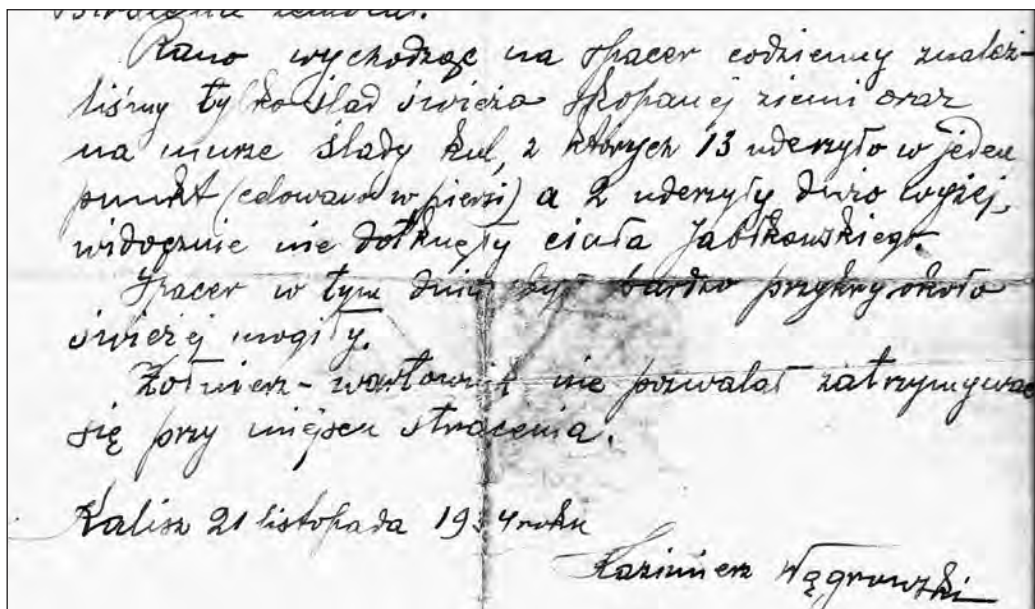 Rano wychodząc na spacer codzienny znaleź-
liśmy tylko ślad świeżo skopanej ziemi oraz
na murze ślady kul, z których 13 uderzyło w jeden
punkt (celowano w piersi) a 2 uderzyły dużo wyżej,
widocznie nie dotknęły ciała Jabłkowskiego.
Spacer w tym dniu był bardzo przykry około
świeżej mogiły.
Żołnierz-wartownik nie pozwalał zatrzymywać
się przy miejscu stracenia.
Kalisz 21 listopada 1934 roku
Kazimierz Węgrowski